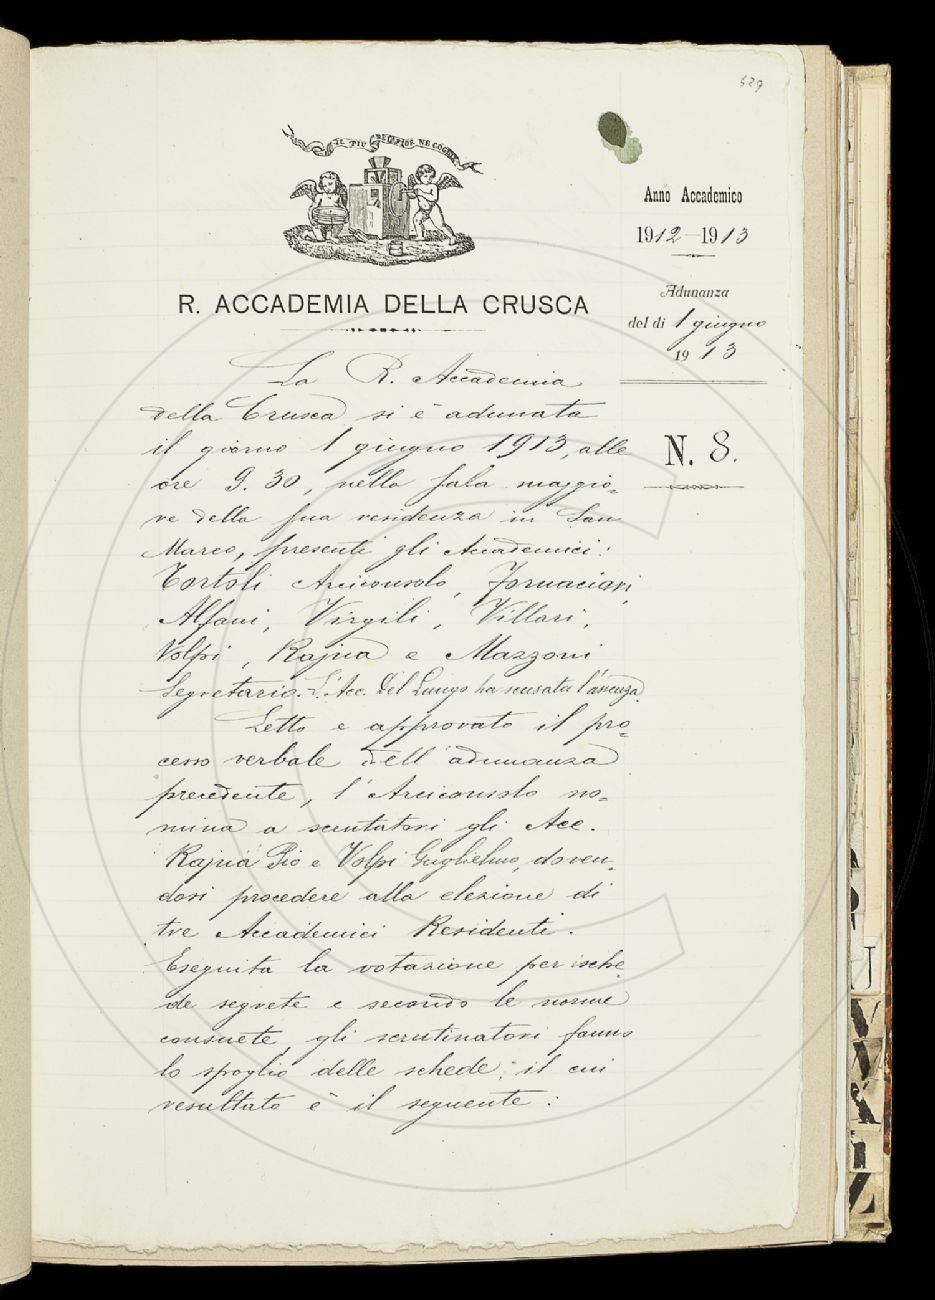 629
IL PIÙ BEL FIOR NE COGLIE
Anno Accademico
1912-1913
Adunanza
del dì 1 giugno
1913
R. ACCADEMIA DELLA CRUSCA
N. 8.
La R. Accademia
della Crusca si è adunata
il giorno 1 giugno 1913, alle
ore 9.30, nella sala maggio=
re della sua residenza in San
Marco, presenti gli Accademici:
Tortoli Arciconsolo, Fornaciari,
Alfani, Virgili, Villari,
Volpi, Rajna e Mazzoni
Segretario. L'Acc. Del Lungo ha scusata l'assenza.
Letto e approvato il pro=
cesso verbale dell'adunanza
precedente, l'Arciconsolo no=
mina a scrutatori gli Acc.
Rajna Pio e Volpi Guglielmo, doven=
dosi procedere alla elezione di
tre Accademici Residenti.
Eseguita la votazione per ische=
de segrete e secondo le norme
consuete, gli scrutinatori fanno
lo spoglio delle schede; il cui
resultato è il seguente: